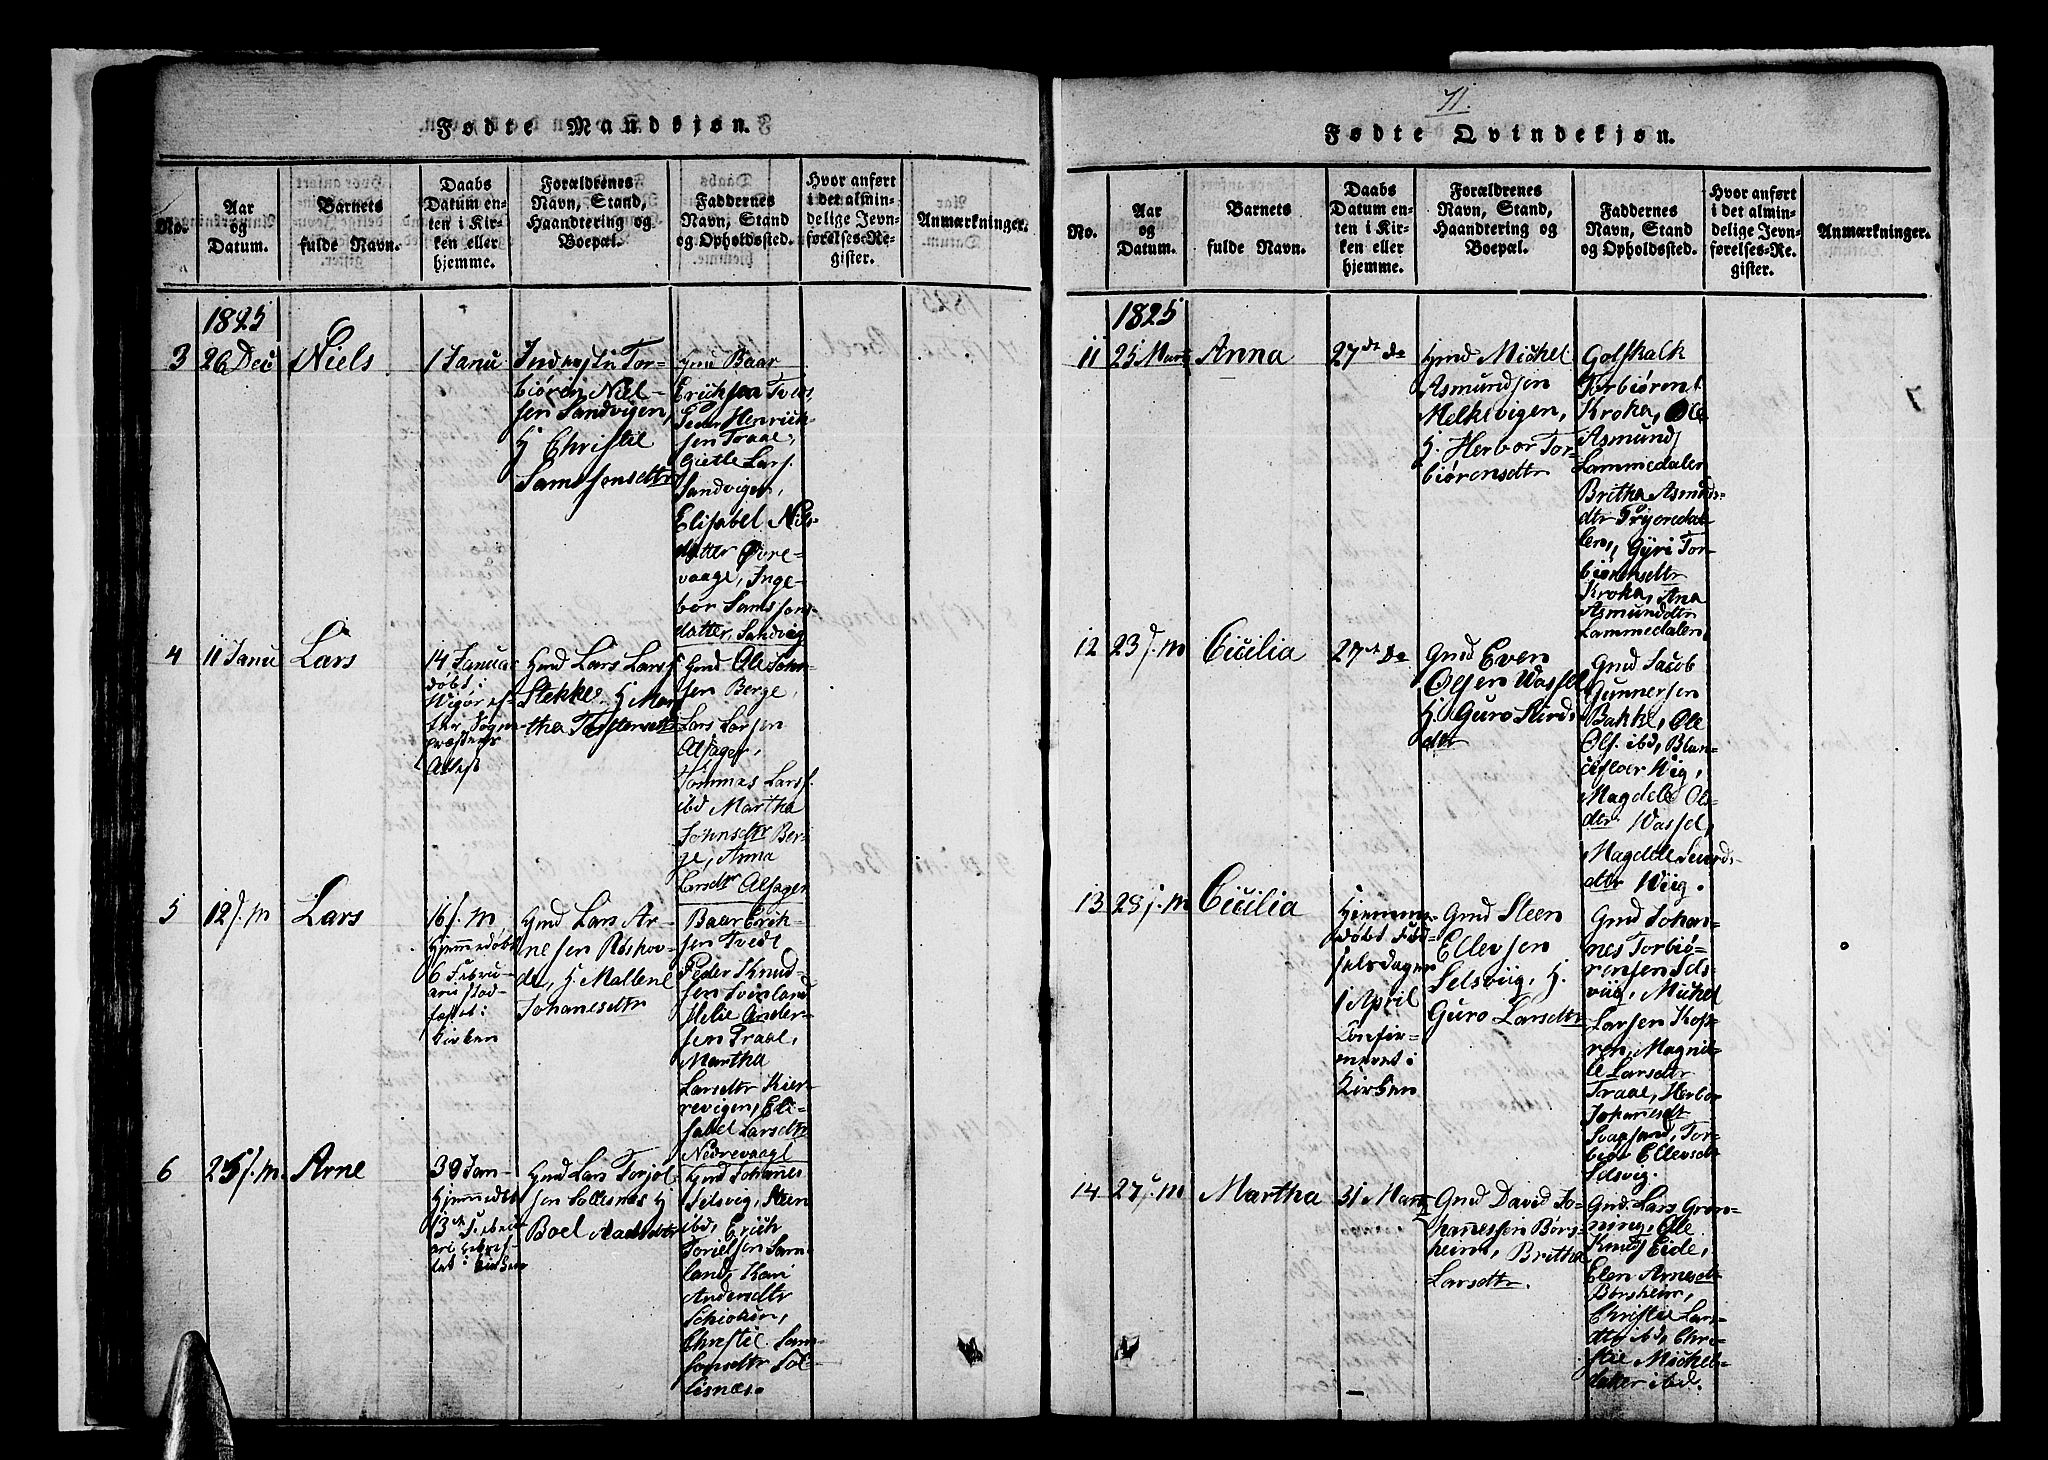 Fødte Mandkjøn.
No.
Aar
og
Datum.
Barnets
fulde Navn.
Daabs
Datum en-
ten i Kir-
ken eller
hjemme.
Forældrenes
Navn, Stand,
Haandtering og
Boepæl.
Faddernes
Navn, Stand
og Opholdssted.
Hvor anført
i det almin-
delige Jevn-
førelses-Re-
gister.
Anmærkninger.
1825
3
26 Dec
Niels
1 Janu
Tor-
biørn Niel-
sen Sandvigen,
H Christie
Samsonsdtr
Baar
Erichsen Tvedt,
Peder Henrich-
sen Traae,
Gietle Lars.
Sandvigen,
Elisabet Niels-
datter Øvre-
vaage, Inge-
bor Samsons-
datter, Sandvig
4
11 Janu
Lars
14 Janua
døbt i
Wigør ef-
ter Sogne
præstens
Attest
Gmd Lars Lars.
Stekke, H Mar-
tha Tostensdtr
Gmd Ole John-
sen Berge,
Lars Larsen
Alsager,
Tommas Lars.
ibd Martha
Johnsdtr Ber-
ge, Anna
Larsdtr Alsager
5
12 J. M
Lars
16 J. M
Hjemmedøbt
6 Febru-
arii stad-
fæstet i
Kirken
Gmd Lars Ar-
nesen Røshov-
de, H. Mallene
Johanesdtr
Baar Erik-
sen Tvedt
Peder Knud-
sen Svinland
Helie Ander-
sen Traae,
Martha
Larsdtr Kier-
revigen, Eli-
sabet Larsdtr
Nedrevaage
6
25 J. M.
Arne
30 Jan-
Hjemmedøbt
13de Febru
arii
i Kirken
Gmd Lars Torjæl
sen Sollesnæs H
Boel Aadsdtr
Gmd Johannes
Selsvig, Steen
ibd, Erich
Torielsen Sam-
land, Kari
Andersdtr
Christie Sam-
sonsdtr Sol-
lesnæs.
71.
Fødte Qvindekjøn.
No.
Aar
og
Datum.
Barnets
fulde Navn.
Daabs
Datum en-
ten i Kir-
ken eller
hjemme.
Forældrenes
Navn, Stand,
Haandtering og
Boepæl.
Faddernes
Navn, Stand
og Opholdssted.
Hvor anført
i det almin-
delige Jevn-
førelses-Re-
gister.
Anmærkninger.
1825
11
25 Marti
Anna
27de do
Gmd Michel
Asmundsen
Melkevigen,
H. Herbor Tor-
biørensdtr
Gotskalk
Torbiørens.
Kroka, Ole
Asmunds.
Lammedalen
Britha Asmunds-
dtr Fyxredal
len, Gyri Tor-
biørensdtr
Kroka, Ana
Asmundsdtr
Lammedalen
12
23 J. M
Cicilia
27de do
Gmd Even
Olsen Wassel
H. Guro Siurds-
dtr
Gmd Jacob
Gunnersen
Bakke, Ole
Ols. ibd,
Wig,
Magdele Ols-
dtr Wassel,
Magdele Siurds-
dtr Wiig.
13
28 J. M
Cicilia
Hiemme-
døbt Fød-
selsdagen
1 April
Confir-
meret i
Kirken
Gmd Steen
Ellevsen
Selsviig, H.
Guro Larsdtr
Gmd Johan-
nes Torbiø-
rensen Sels-
viig, Michel
Larsen
Magnil-
le Larsdtr
Traae, Herbor
Johanesdtr
Svassand, Tor-
bior Ellevsdtr
Selsvig.
14
27 J. M
Martha
31 Marti
Gmd David Jo-
hannessen Børs-
heim, Britha
Larsdtr.
Gmd. Lars Grøn-
ning, Ole
Knuds. Eide,
Elen Arnesdtr
Børsheim,
Christie Lars-
dtr ibd, Chri-
stie Michels-
datter ibd.